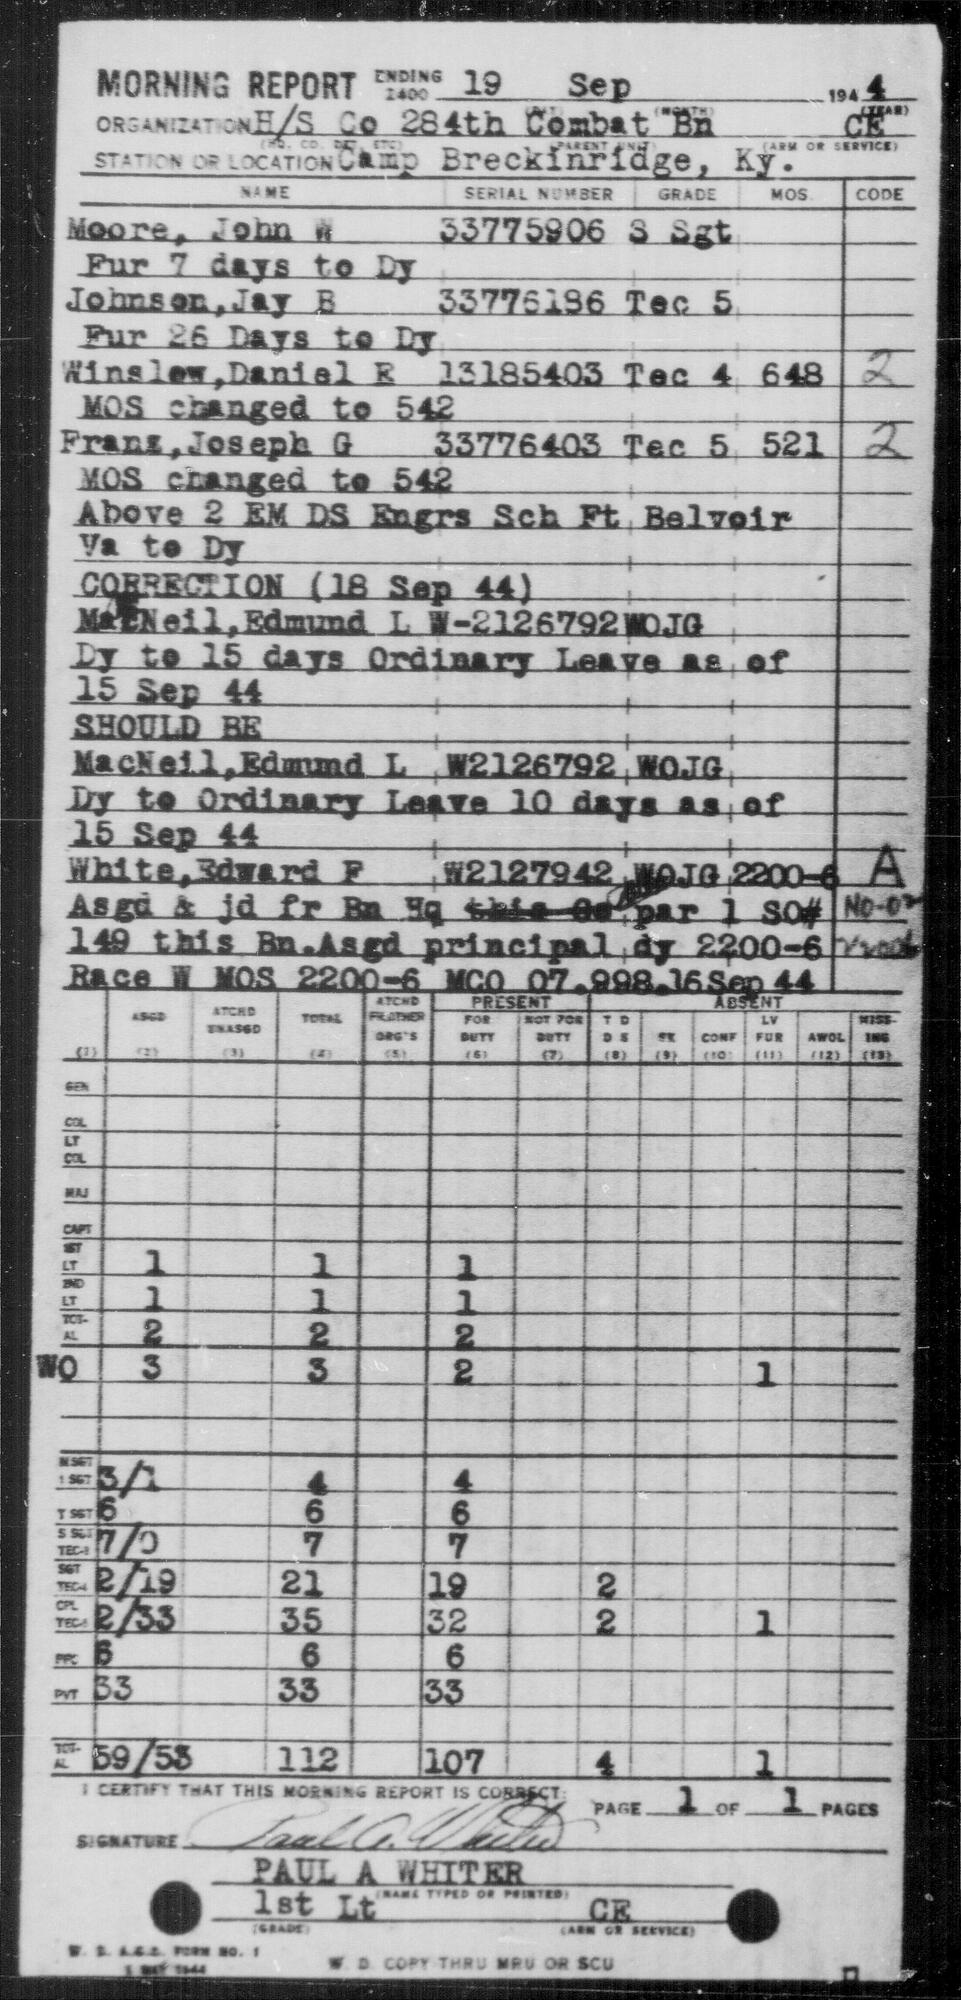 MORNING REPORT ENDING 2400 19 Sep 1944
(DAY) (MONTH) (YEAR)
ORGANIZATION H/S Co 284th Combat Bn CE
(HQ. CO. DET. ETC) (PARENT UNIT) (ARM OR SERVICE)
STATION OR LOCATION Camp Breckinridge, Ky.
NAME SERIAL NUMBER GRADE MOS. CODE
Moore, John W 33775906 S Sgt
Fur 7 days to Dy
Johnson,Jay B 33776186 Tec 5
Fur 26 Days to Dy
Winslow,Daniel R 13185403 Tec 4 648 2
MOS changed to 542
Franz,Joseph G 33776403 Tec 5 521 2
MOS changed to 542
Above 2 EM DS Engrs Sch Ft Belvoir
Va to Dy
CORRECTION (18 Sep 44)
MacNeil,Edmund L W-2126792 WOJG
Dy to 15 days Ordinary Leave as of
15 Sep 44
SHOULD BE
MacNeil,Edmund L W2126792 WOJG
Dy to Ordinary Leave 10 days as of
15 Sep 44
White,Edward F W2127942 WOJG 2200-6 A
Asgd & jd fr Bn Hq this Co par 1 SO#
149 this Bn.Asgd principal dy 2200-6
Race W MOS 2200-6 MCO 07.998.16Sep 44
PRESENT ABSENT
ASGD ATCHD UNASGD TOTAL ATCHD FR OTHER ORG'S FOR DUTY NOT FOR DUTY T D D S SK CONF LV FUR AWOL MISSING
(1) (2) (3) (4) (5) (6) (7) (8) (9) (10) (11) (12) (13)
GEN
COL
LT COL
MAJ
CAPT
1ST LT 1 1 1
2ND LT 1 1 1
TOT-AL 2 2 2
WO 3 3 2 1
M SGT 1 SGT 3/1 4 4
T SGT 6 6 6
S SGT TEC-3 7/0 7 7
SGT TEC-4 2/19 21 19 2
CPL TEC-5 2/33 35 32 2 1
PFC 6 6 6
PVT 33 33 33
TOT-AL 59/53 112 107 4 1
I CERTIFY THAT THIS MORNING REPORT IS CORRECT:
PAGE 1 OF 1 PAGES
SIGNATURE Paul A. Whiter
PAUL A WHITER
(NAME TYPED OR PRINTED)
1st Lt CE
(GRADE) (ARM OR SERVICE)
W. D. A.G.O. FORM NO. 1
1 MAY 1944
W. D. COPY THRU MRU OR SCU